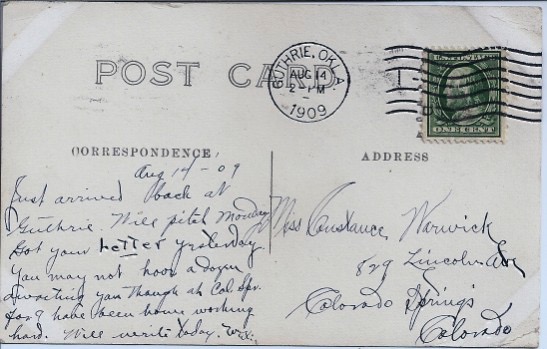 POST CARD
GUTHRIE, OKLA.
AUG 14
2-PM
1909
ONE CENT
CORRESPONDENCE
ADDRESS
Aug 14-09
Just arrived back at
Guthrie. Will pitch Monday
Got your letter yesterday.
You may not a dozen
awaiting you though at Col. Spr.
for I have been working
hard. Will write today.
Miss Constance Warwick
829 Lincoln Ave
Colorado Springs
Colorado